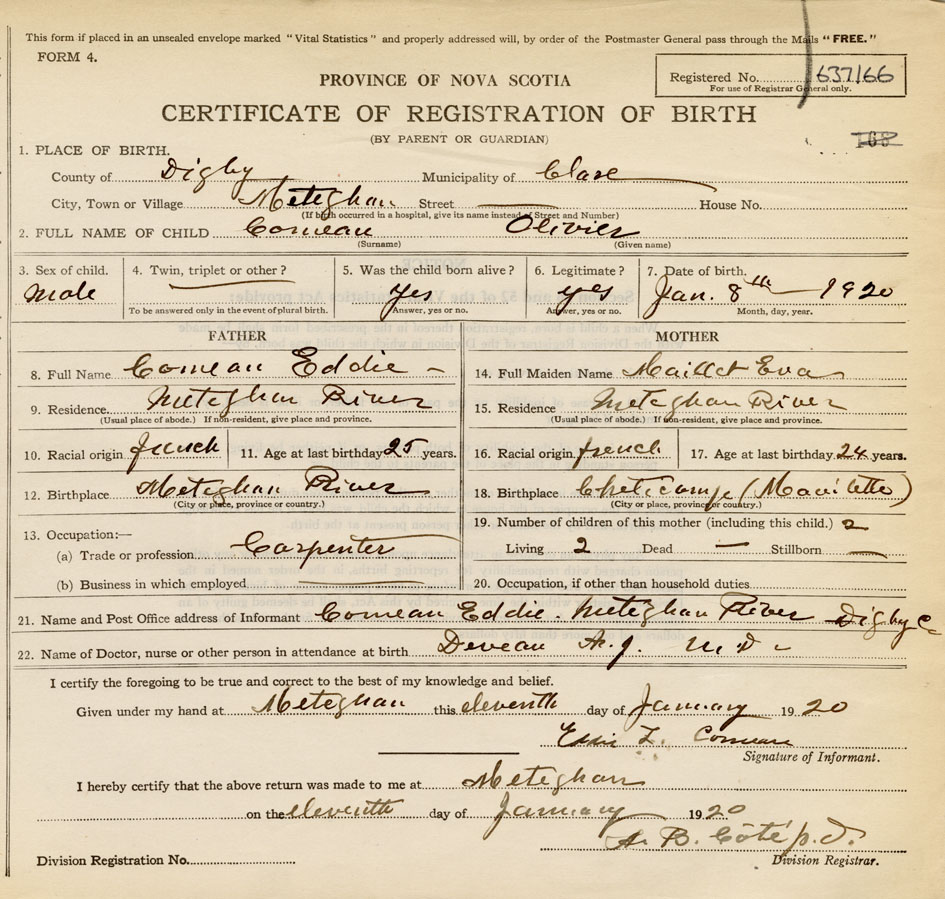 This form if placed in an unsealed envelope marked "Vital Statistics" and properly addressed will, by order of the Postmaster General pass through the Mails "FREE."
FORM 4.
PROVINCE OF NOVA SCOTIA
Registered No. 637166
For use of Registrar General only.
CERTIFICATE OF REGISTRATION OF BIRTH
(BY PARENT OR GUARDIAN)
168
1. PLACE OF BIRTH.
County of Digby Municipality of Clare
City, Town or Village Meteghan Street House No.
(If birth occurred in a hospital, give its name instead of Street and Number)
2. FULL NAME OF CHILD Comeau Olivier
(Surname) (Given name)
3. Sex of child. 4. Twin, triplet or other? 5. Was the child born alive? 6. Legitimate? 7. Date of birth.
Male yes yes Jan. 8th 1920
To be answered only in the event of plural birth. Answer, yes or no. Answer, yes or no. Month, day, year.
FATHER MOTHER
8. Full Name Comeau Eddie 14. Full Maiden Name Maillet Eva
9. Residence Meteghan River 15. Residence Meteghan River
(Usual place of abode.) If non-resident, give place and province. (Usual place of abode.) If non-resident, give place and province.
10. Racial origin french 11. Age at last birthday 25 years. 16. Racial origin french 17. Age at last birthday 24 years.
12. Birthplace Meteghan River 18. Birthplace Cheticamp (Mavilette)
(City or place, province or country.) (City or place, province or country.)
13. Occupation:— 19. Number of children of this mother (including this child.) 2
(a) Trade or profession Carpenter Living 2 Dead — Stillborn —
(b) Business in which employed 20. Occupation, if other than household duties
21. Name and Post Office address of Informant Comeau Eddie. Meteghan River Digby C
22. Name of Doctor, nurse or other person in attendance at birth Deveau M.D.
I certify the foregoing to be true and correct to the best of my knowledge and belief.
Given under my hand at Meteghan this eleventh day of January 1920
Comeau
Signature of Informant.
I hereby certify that the above return was made to me at Meteghan
on the eleventh day of January 1920
A. B. Côté p.d.
Division Registration No. Division Registrar.